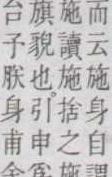 而云施身自謂
施讀施捨之施
旗貌也。引申爲
台予朕身甫余